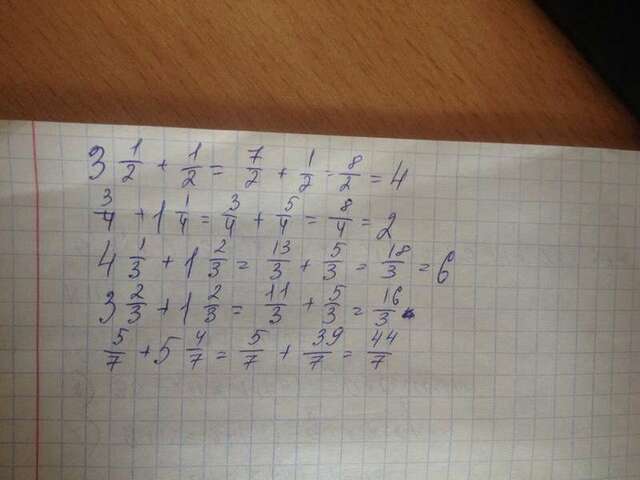 3 1/2 + 1/2 = 7/2 + 1/2 = 8/2 = 4
3/4 + 1 1/4 = 3/4 + 5/4 = 8/4 = 2
4 1/3 + 1 2/3 = 13/3 + 5/3 = 18/3 = 6
3 2/3 + 1 2/3 = 11/3 + 5/3 = 16/3
5/7 + 5 4/7 = 5/7 + 39/7 = 44/7